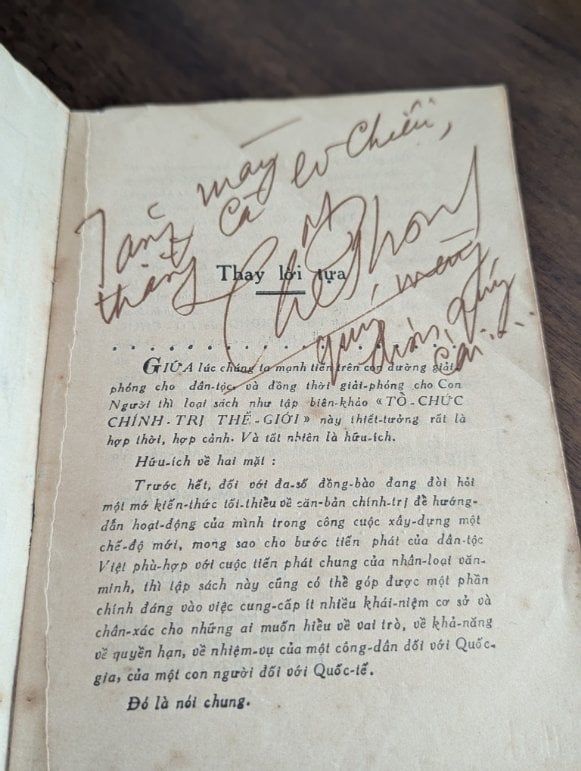 Tặng mày
thằng cà lơ Chiểu,
Thay lời tựa
GIỮA lúc chúng ta mạnh tiến trên con đường giải-
phóng cho dân-tộc, và đồng thời giải-phóng cho Con
Người thì loại sách như tập biên-khảo «TỔ-CHỨC
CHÍNH-TRỊ THẾ-GIỚI» này thiết-tưởng rất là
hợp thời, hợp cảnh. Và tất nhiên là hữu-ích.
Hữu-ích về hai mặt :
Trước hết, đối với đa-số đồng-bào đang đòi hỏi
một mớ kiến-thức tối-thiểu về căn-bản chính-trị để hướng-
dẫn hoạt-động của mình trong công cuộc xây-dựng một
chế-độ mới, mong sao cho bước tiến phát của dân-tộc
Việt phù-hợp với cuộc tiến phát chung của nhân-loại văn-
minh, thì tập sách này cũng có thể góp được một phần
chính đáng vào việc cung-cấp ít nhiều khái-niệm cơ sở và
chân-xác cho những ai muốn hiểu về vai trò, về khả-năng
về quyền hạn, về nhiệm-vụ của một công-dân đối với Quốc-
gia, của một con người đối với Quốc-tế.
Đó là nói chung.